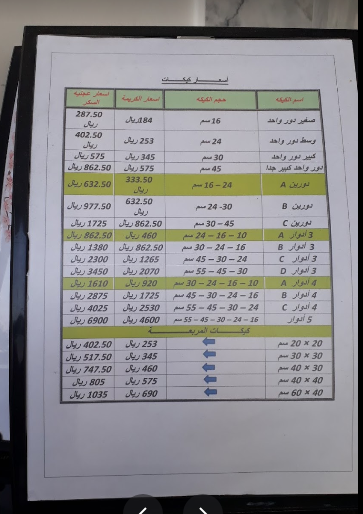 أسعار كيكات
اسم الكيكه حجم الكيكه اسعار الكريمة اسعار عجينة السكر
صغير دور واحد 16 سم 184 ريال 287.50 ريال
وسط دور واحد 24 سم 253 ريال 402.50 ريال
كبير دور واحد 30 سم 345 ريال 575 ريال
دور واحد كبير جدا 45 سم 575 ريال 862.50 ريال
دورين A 24 – 16 سم 333.50 ريال 632.50 ريال
دورين B 30- 24 سم 632.50 ريال 977.50 ريال
دورين C 45 – 30 سم 862.50 ريال 1725 ريال
3 أدوار A 10 – 16 – 24 سم 460 ريال 862.50 ريال
3 أدوار B 16 – 24 – 30 سم 862.50 ريال 1380 ريال
3 أدوار C 24 – 30 – 45 سم 1265 ريال 2300 ريال
3 أدوار D 30 – 45 – 55 سم 2070 ريال 3450 ريال
4 أدوار A 10 – 16 – 24 – 30 سم 920 ريال 1610 ريال
4 أدوار B 16 – 24 – 30 – 45 سم 1725 ريال 2875 ريال
4 أدوار C 24 – 30 – 45 – 55 سم 2530 ريال 4025 ريال
5 أدوار 16 – 24 – 30 – 45 – 55 سم 4600 ريال 6900 ريال
كيكات المربعة
20 × 20 سم 253 ريال 402.50 ريال
30 × 30 سم 345 ريال 517.50 ريال
30 × 40 سم 460 ريال 747.50 ريال
40 × 40 سم 575 ريال 805 ريال
40 × 60 سم 690 ريال 1035 ريال